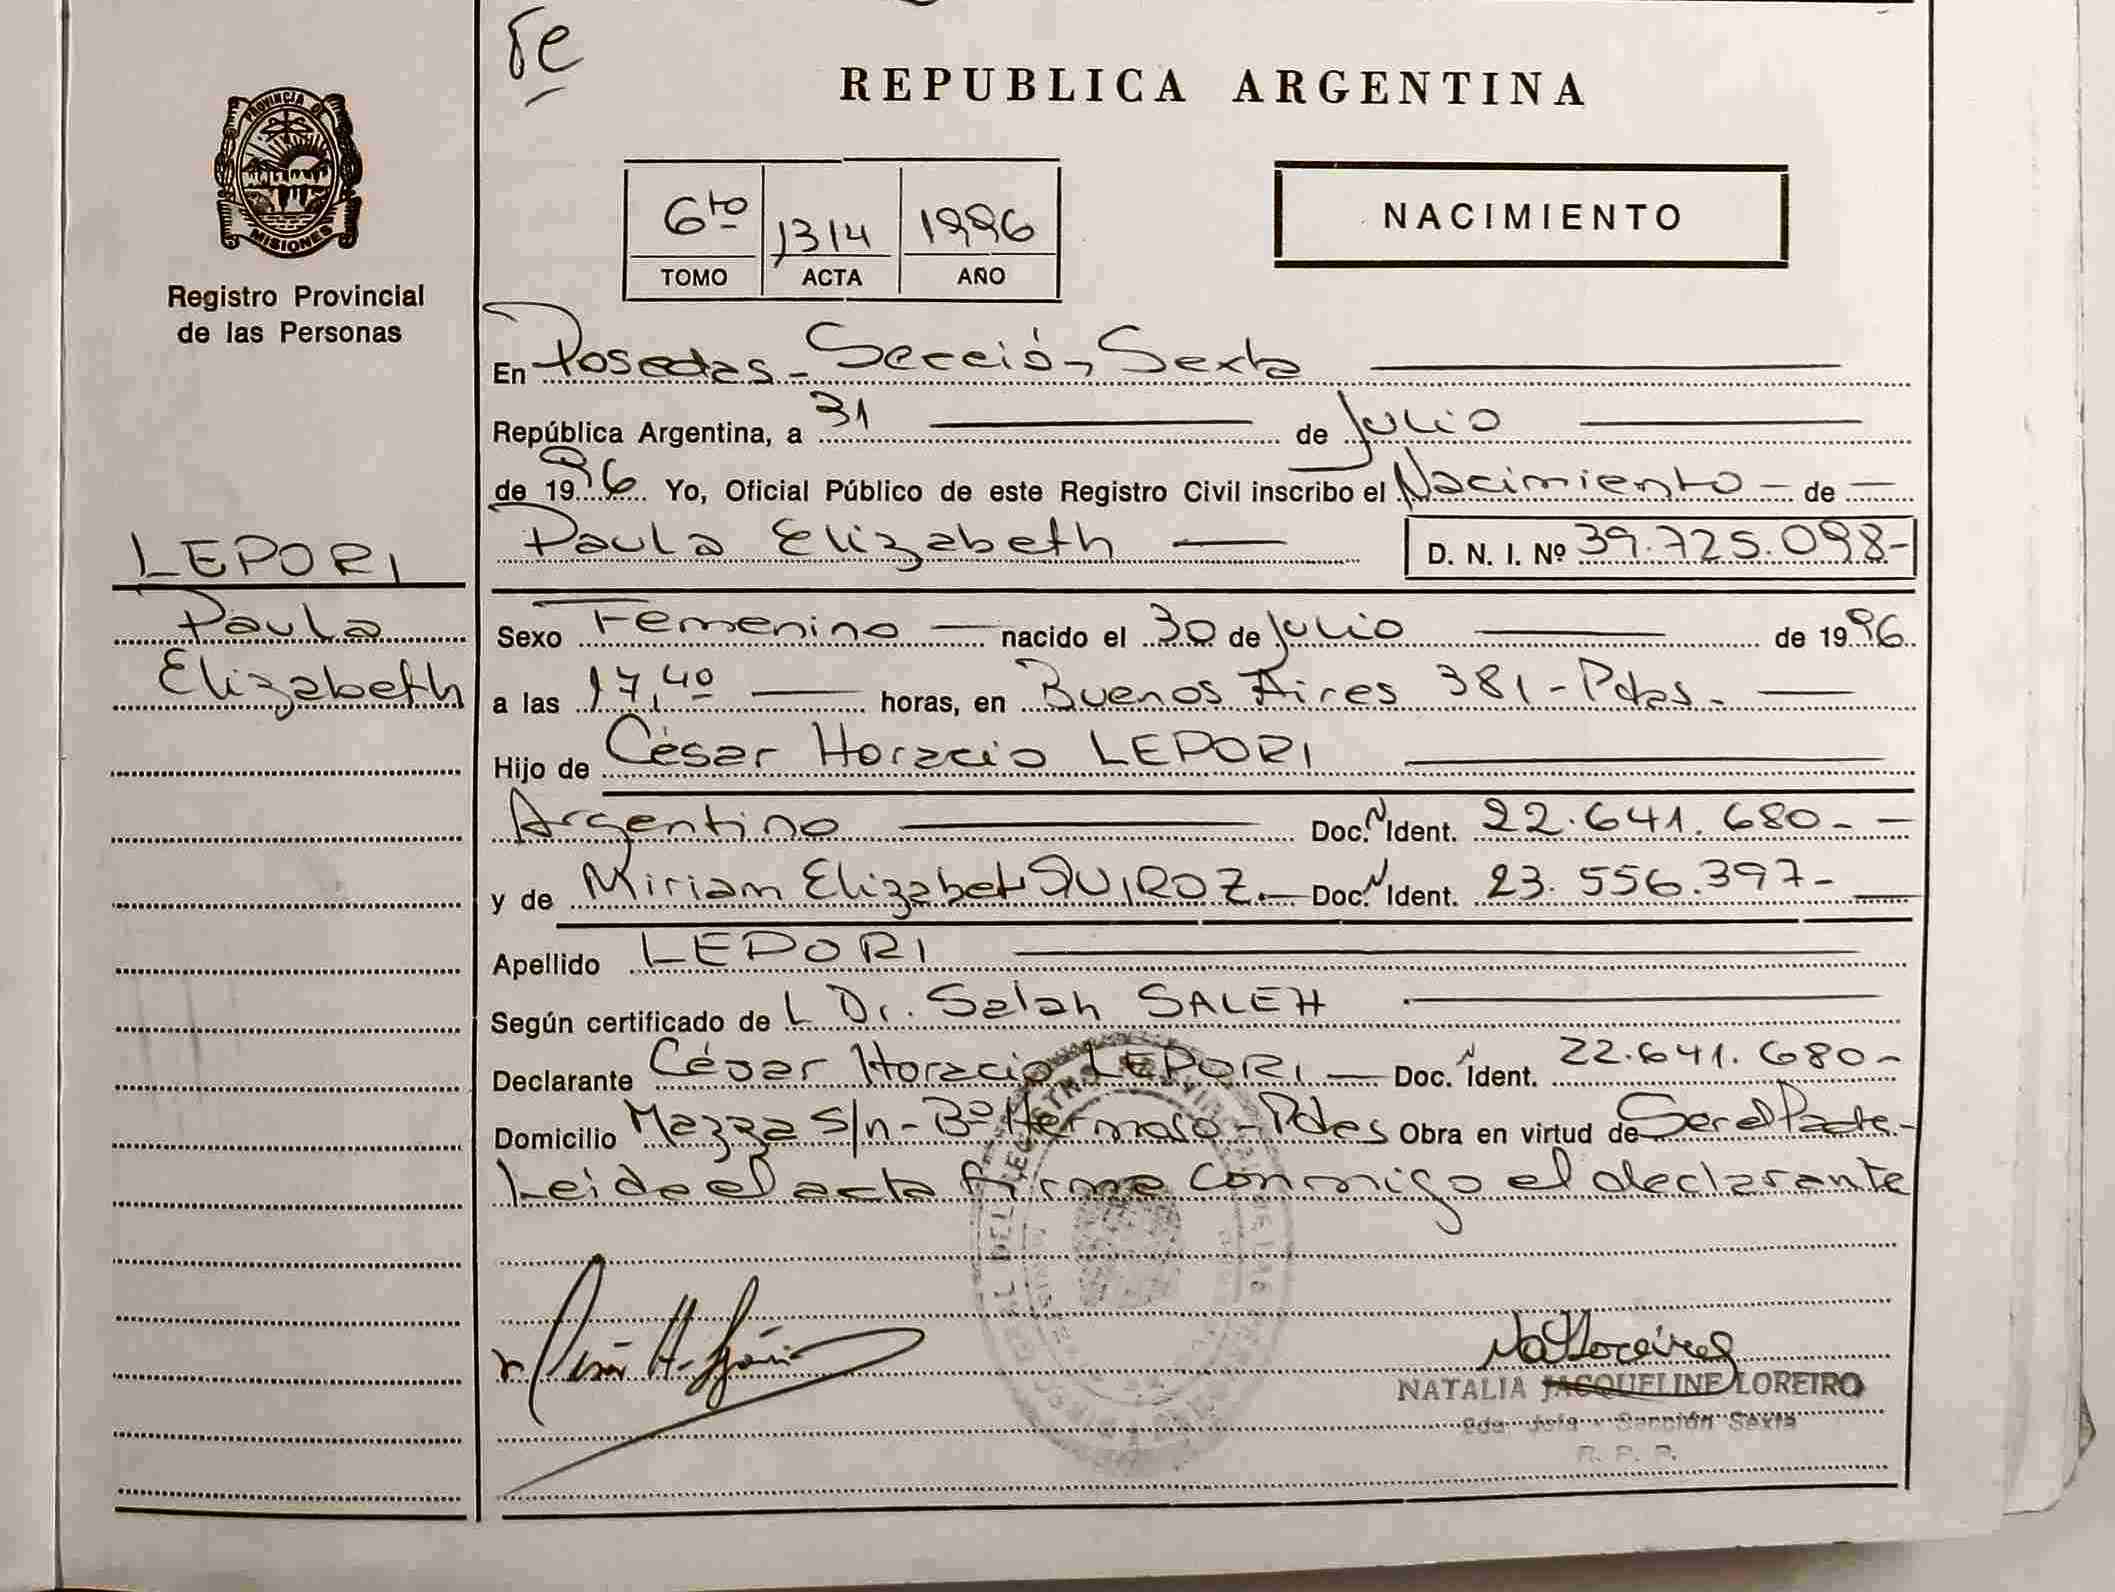 Fe
REPUBLICA ARGENTINA
PROVINCIA DE
MISIONES
Registro Provincial
de las Personas
6to 1314 1996
TOMO ACTA AÑO
NACIMIENTO
En Posadas - Sección Sexta
República Argentina, a 31 de Julio
de 1996 Yo, Oficial Público de este Registro Civil inscribo el Nacimiento - de -
Paula Elizabeth D. N. I. Nº 39.725.098-
LEPORI
Paula
Elizabeth
Sexo Femenino nacido el 30 de Julio de 1996
a las 17,40 horas, en Buenos Aires 381 - Pdas -
Hijo de César Horacio LEPORI
Argentino Doc. N Ident. 22.641.680-
y de Miriam Elizabet QUIROZ.- Doc. N Ident. 23.556.397-
Apellido LEPORI
Según certificado de L Dr. Salah SALEH
Declarante César Horacio LEPORI - Doc. N Ident. 22.641.680-
Domicilio Mazza s/n - Bº Hermoso - Pdas Obra en virtud de Ser el Padre.-
Leida el acta firma conmigo el declarante
NATALIA JACQUELINE LOREIRO
Sección Sexta
R. P. P.